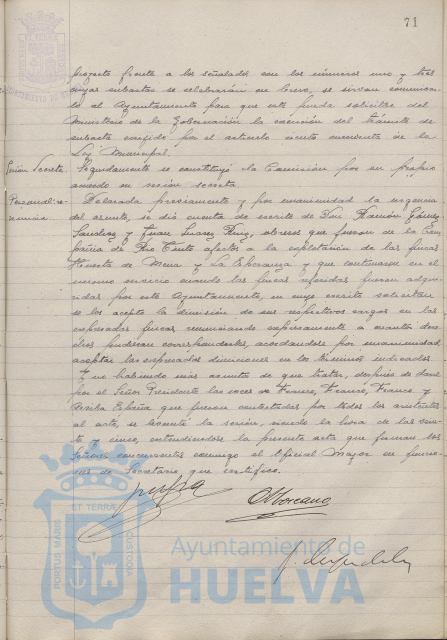 71
proyecto frente a los señalados con los números uno y tres
cuyas subastas se celebrarán en breve, se sirvan comunicar
lo al Ayuntamiento para que este pueda solicitar del
Ministerio de la Gobernación la exención del trámite de
subasta exigido por el artículo ciento cincuenta de la
Ley Municipal.
Sesión Secreta. Seguidamente se constituyó la Comisión por su propio
acuerdo en sesión secreta.
Personal: renuncia. Declarada previamente y por unanimidad la urgencia
del asunto, se dió cuenta de escrito de Don Ramón Gómez
Sánchez y Juan Suarez Ruiz, obreros que fueron de la Com
pañia de Rio Tinto afectos a la explotación de las fincas
Huerta de Mena y La Esperanza y que continuaron en el
mismo servicio cuando las fincas referidas fueron adqui
ridas por este Ayuntamiento, en cuyo escrito solicitan
se les acepte la dimisión de sus respectivos cargos en las
expresadas fincas, renunciando expresamente a cuantos dere
chos pudieran corresponderles, acordándose por unanimidad
aceptar las expresadas dimisiones en los términos indicados.
Y no habiendo más asuntos de que tratar, después de darse
por el Señor Presidente las voces de Franco, Franco, Franco y
Arriba España que fueron contestadas por todos los asistentes
al acto, se levantó la sesión, siendo la hora de las
y cinco, extendiéndose la presente acta que firman los
Señores concurrentes conmigo el Oficial Mayor en funcio
nes de Secretario que certifico.
PORTUS MARIS ET TERRAE CUSTODIA
Ayuntamiento de
HUELVA